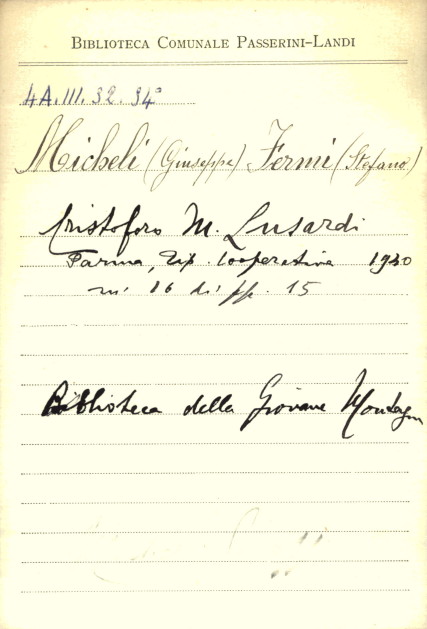 BIBLIOTECA COMUNALE PASSERINI-LANDI
4A.III.32.34°
Micheli (Giuseppe) Fermi (Stefano)
Cristoforo M. Lusardi
Parma, Tip. Cooperativa 1930
in 16 di pp. 15
Biblioteca della Giovane Montagna